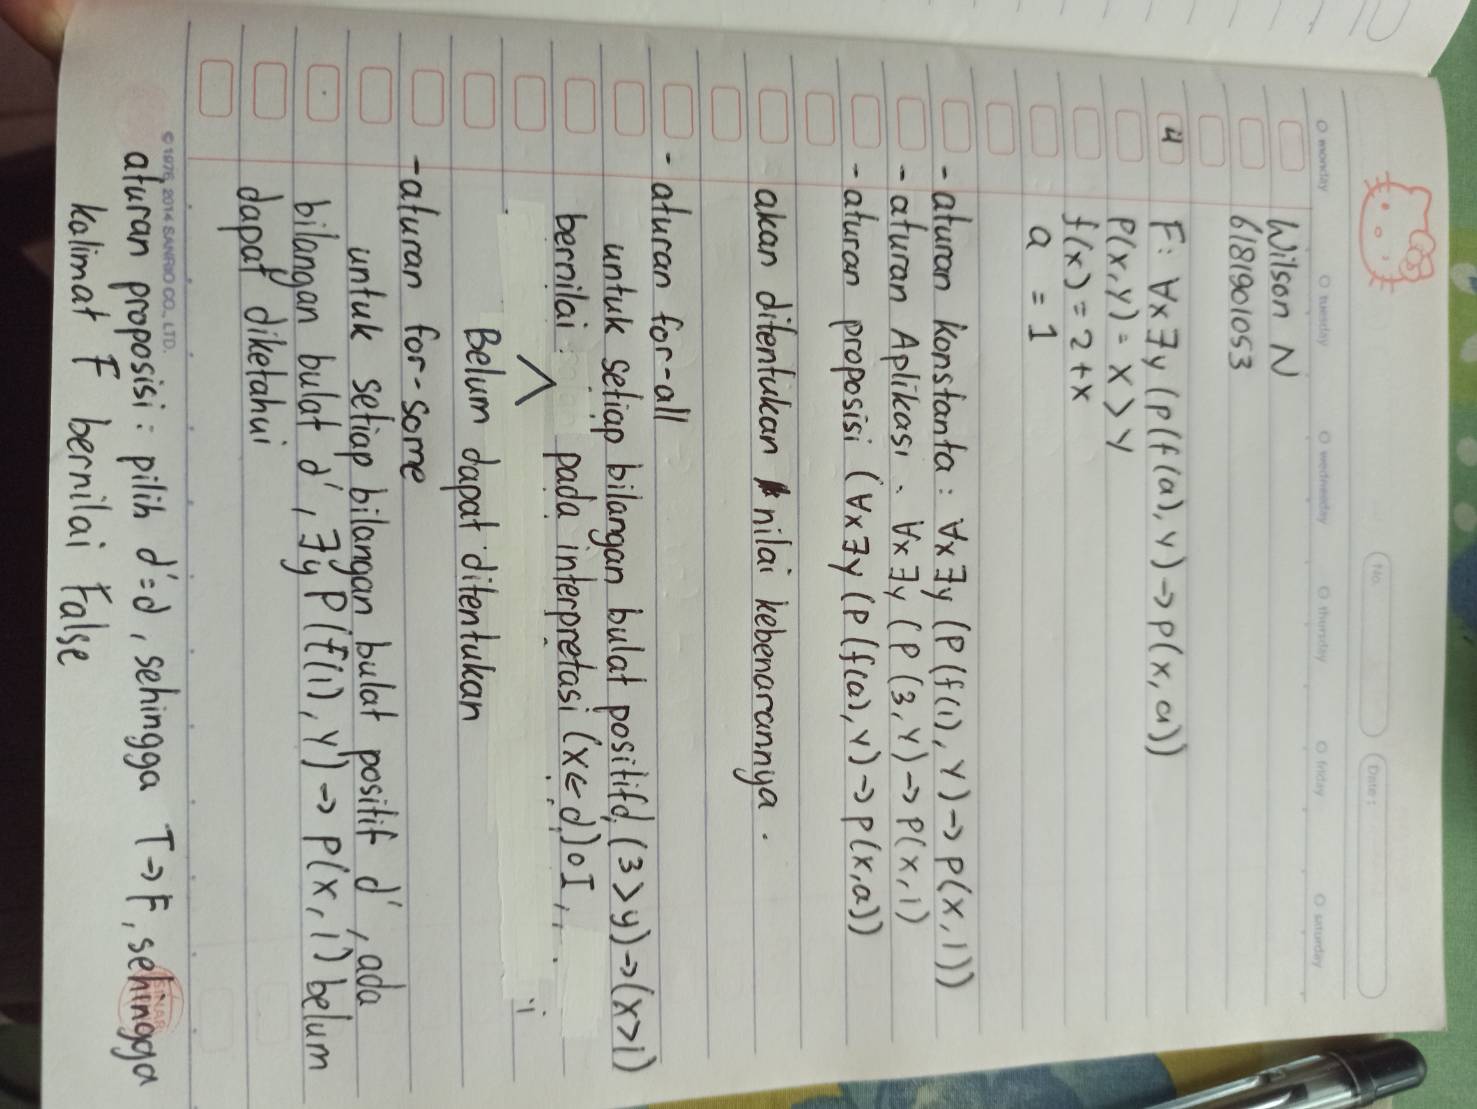 No.
Date:
monday tuesday wednesday thursday friday saturday
Wilson N
6181901053
4 F: ∀x∃y (P(f(a), y) → P(x, a))
P(x, y) = x > y
f(x) = 2 + x
a = 1
- aturan konstanta : ∀x∃y (P(f(1), y) → P(x, 1)))
- aturan Aplikasi ∀x∃y (P(3, y) → P(x, 1)
- aturan proposisi (∀x∃y (P(f(a), y) → P(x, a))
akan ditentukan nilai kebenarannya.
- aturan for-all
untuk setiap bilangan bulat positif d, (3 > y) → (x > 1)
bernilai: pada interpretasi (x ← d) o I,
Belum dapat ditentukan
- aturan for-some
untuk setiap bilangan bulat positif d', ada
bilangan bulat d', ∃y P(f(1), y) → P(x, 1) belum
dapat diketahui
© 1976, 2014 SANRIO CO., LTD.
SINAR
aturan proposisi : pilih d' = d, sehingga T → F, sehingga
kalimat F bernilai False